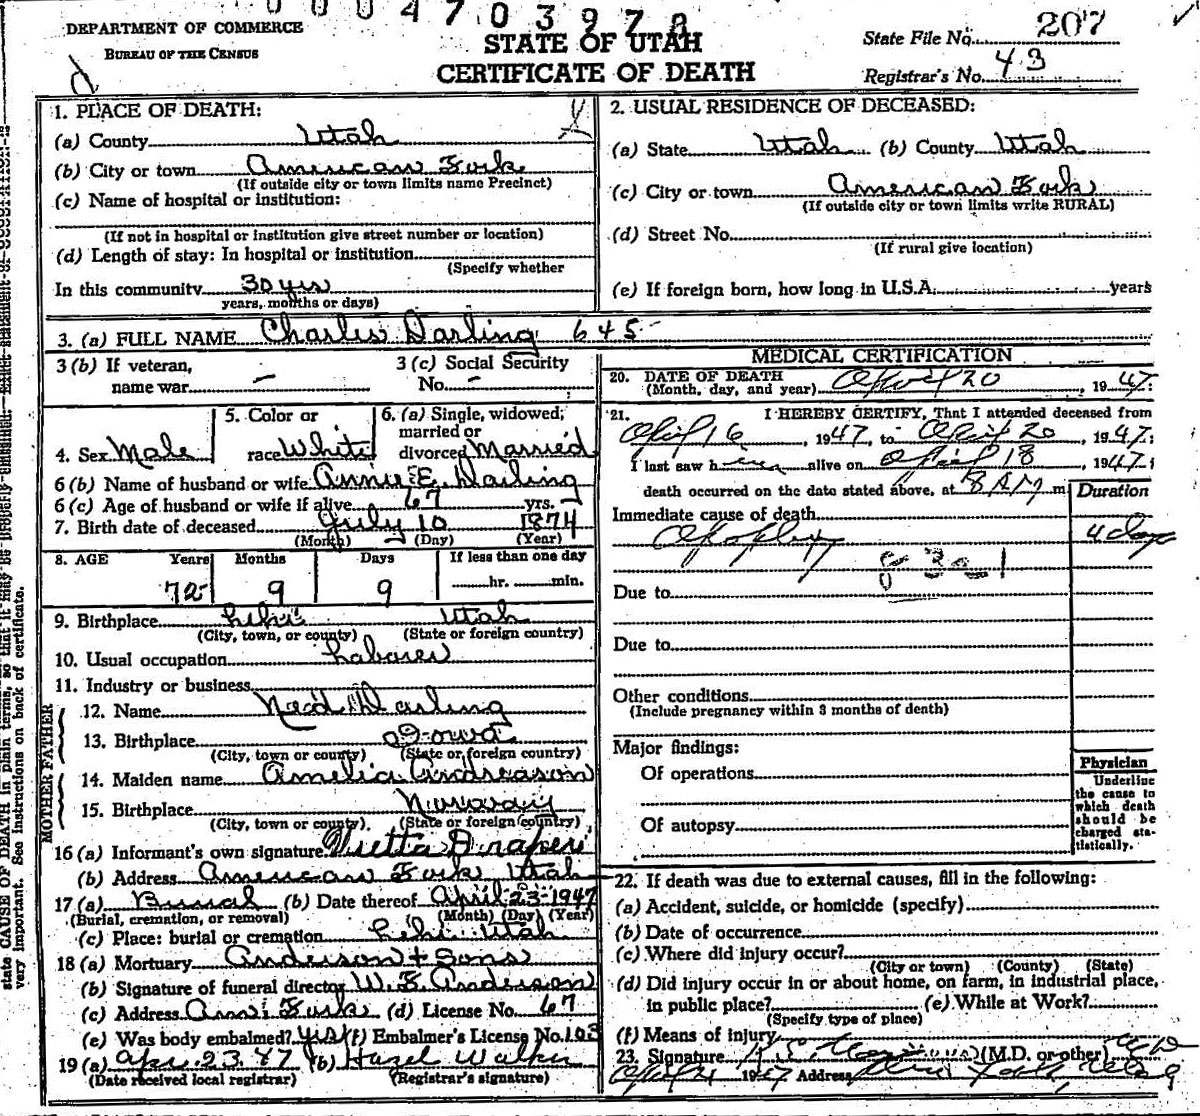 0004703970
DEPARTMENT OF COMMERCE
BUREAU OF THE CENSUS
STATE OF UTAH
CERTIFICATE OF DEATH
State File No. 207
Registrar's No. 43
1. PLACE OF DEATH:
(a) County Utah
(b) City or town American Fork
(If outside city or town limits name Precinct)
(c) Name of hospital or institution:
(If not in hospital or institution give street number or location)
(d) Length of stay: In hospital or institution
(Specify whether
In this community 30 yrs
years, months or days)
2. USUAL RESIDENCE OF DECEASED:
(a) State Utah (b) County Utah
(c) City or town American Fork
(If outside city or town limits write RURAL)
(d) Street No.
(If rural give location)
(e) If foreign born, how long in U.S.A. years
3. (a) FULL NAME Charles Darling 645
3 (b) If veteran,
name war. –
3 (c) Social Security
No. –
4. Sex Male
5. Color or
race White
6. (a) Single, widowed,
married or
divorced Married
6 (b) Name of husband or wife Annie E. Darling
6 (c) Age of husband or wife if alive 67 yrs.
7. Birth date of deceased July 10 1874
(Month) (Day) (Year)
8. AGE Years Months Days If less than one day
72 9 9 hr. min.
9. Birthplace Lehi Utah
(City, town, or county) (State or foreign country)
10. Usual occupation Laborer
11. Industry or business
FATHER
12. Name Darling
13. Birthplace Iowa
(City, town or county) (State or foreign country)
MOTHER
14. Maiden name Amelia Andreason
15. Birthplace Norway
(City, town or county) (State or foreign country)
16 (a) Informant's own signature Draper
(b) Address American Fork Utah
17 (a) Burial (b) Date thereof April-23-1947
(Burial, cremation, or removal) (Month) (Day) (Year)
(c) Place: burial or cremation Lehi Utah
18 (a) Mortuary Anderson & Sons
(b) Signature of funeral director W. E. Anderson
(c) Address Am. Fork (d) License No. 67
(e) Was body embalmed? yes (f) Embalmer's License No. 103
19 (a) Apr. 23. 47 (b) Hazel Walker
(Date received local registrar) (Registrar's signature)
MEDICAL CERTIFICATION
20. DATE OF DEATH
(Month, day, and year) April 20, 1947:
21. I HEREBY CERTIFY, That I attended deceased from
April 16, 1947, to April 20, 1947;
I last saw him alive on April 18, 1947;
death occurred on the date stated above, at 8 AM m
Duration
Immediate cause of death
Apoplexy 4 days
8321
Due to
Due to
Other conditions
(Include pregnancy within 3 months of death)
Major findings:
Of operations
Of autopsy
Physician
Underline
the cause to
which death
should be
charged sta-
tistically.
22. If death was due to external causes, fill in the following:
(a) Accident, suicide, or homicide (specify)
(b) Date of occurrence
(c) Where did injury occur?
(City or town) (County) (State)
(d) Did injury occur in or about home, on farm, in industrial place,
in public place? (e) While at Work?
(Specify type of place)
(f) Means of injury
23. Signature (M.D. or other)
April 21 1947 Address
state CAUSE OF DEATH in plain terms, so that it may be properly
very important. See instructions on back of certificate.